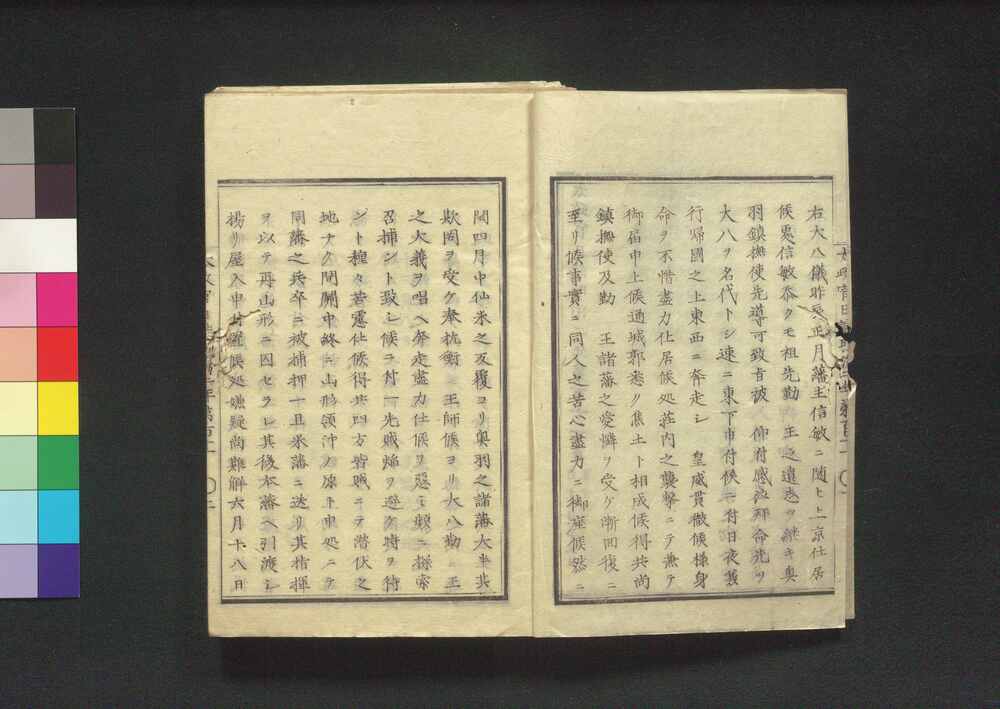 右大八儀昨辰正月藩主信敏ニ随ヒ上京仕居
候処信敏忝クモ祖先勤　王之遺志ヲ継キ奥
羽鎮撫使先導可致旨被　仰付感泣拜命先ツ
大八ヲ名代トシ速ニ東下申付候ニ付日夜兼
行帰國之上東西ニ奔走シ　皇威貫徹候様身
命ヲ不惜盡力仕居候処莊内之襲撃ニ無テ
御届申上候通城郭悉ク焦土ト相成候得共尚
鎮撫使及勤　王諸藩之愛憐ヲ受ケ漸回復ニ
至リ候事實ニ同人之苦心盡力ニ御座候然ニ
閏四月中仙米之反覆ヨリ奥羽之諸藩大半共
欺罔ヲ受ケ奉抗衡　王師候ヨリ大八勤　王
之大義ヲ唱ヘ奔走盡力仕候ヲ惡ミ頻ニ探索
召捕ント致シ候ニ付一先賊焔ヲ避ケ時ヲ待
ント種々苦慮仕候得共四方皆賊ニテ潜伏之
地ナク間關中終ニ山形領沖ノ原ト申処ニテ
同藩之兵卒ニ被捕押一旦米藩ニ送リ其指揮
ヲ以テ再山形ニ囚セラレ其後本藩ヘ引渡シ
揚リ屋入申付置候処嫌疑尚難解六月十八日